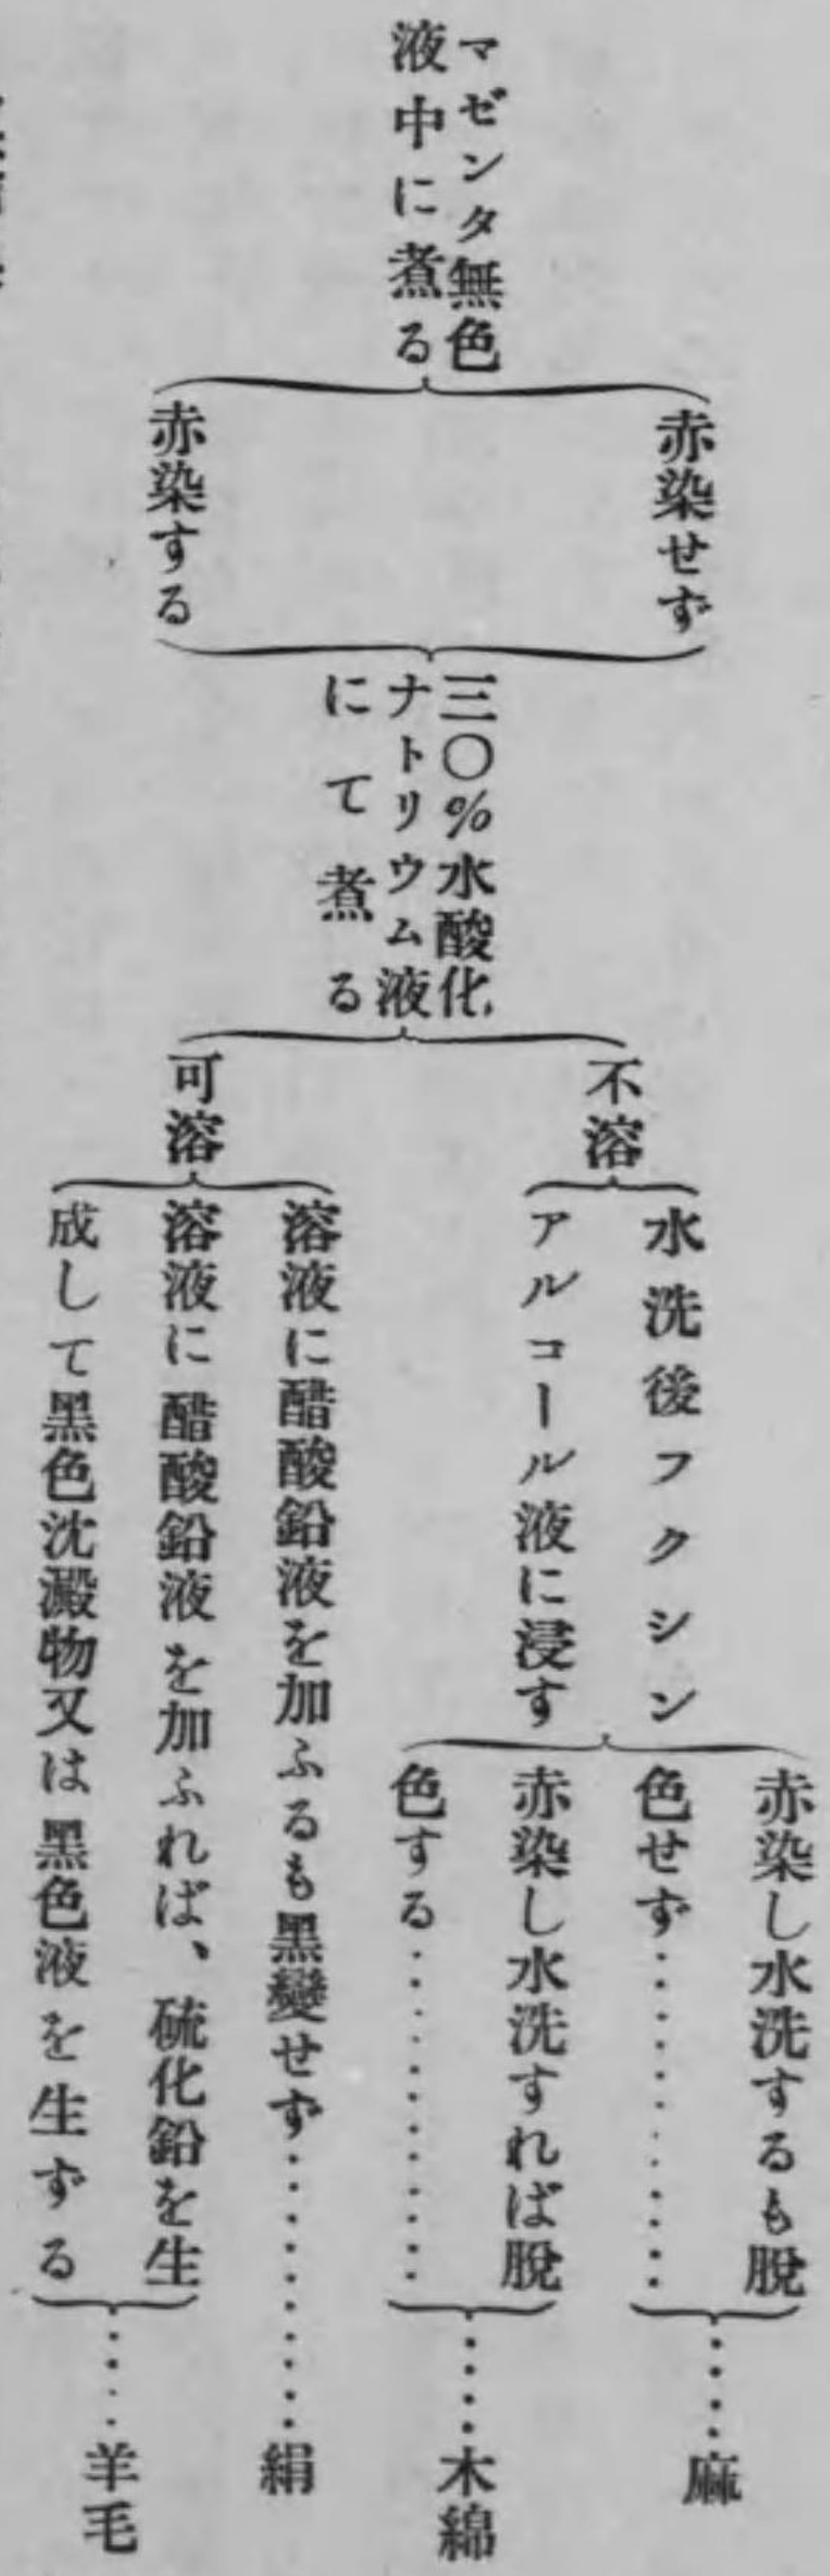 マゼンタ無色
液中に煮る
赤染せず
赤染する
三〇%水酸化
ナトリウム液
にて煮る
不溶
水洗後フクシン
アルコール液に浸す
赤染し水洗するも脫
色せず…………
麻
赤染し水洗すれば脫
色する…………
木綿
可溶
溶液に醋酸鉛液を加ふるも黑變せず…………絹
溶液に醋酸鉛液を加ふれば、硫化鉛を生
成して黑色沈澱物又は黑色液を生ずる
……羊毛